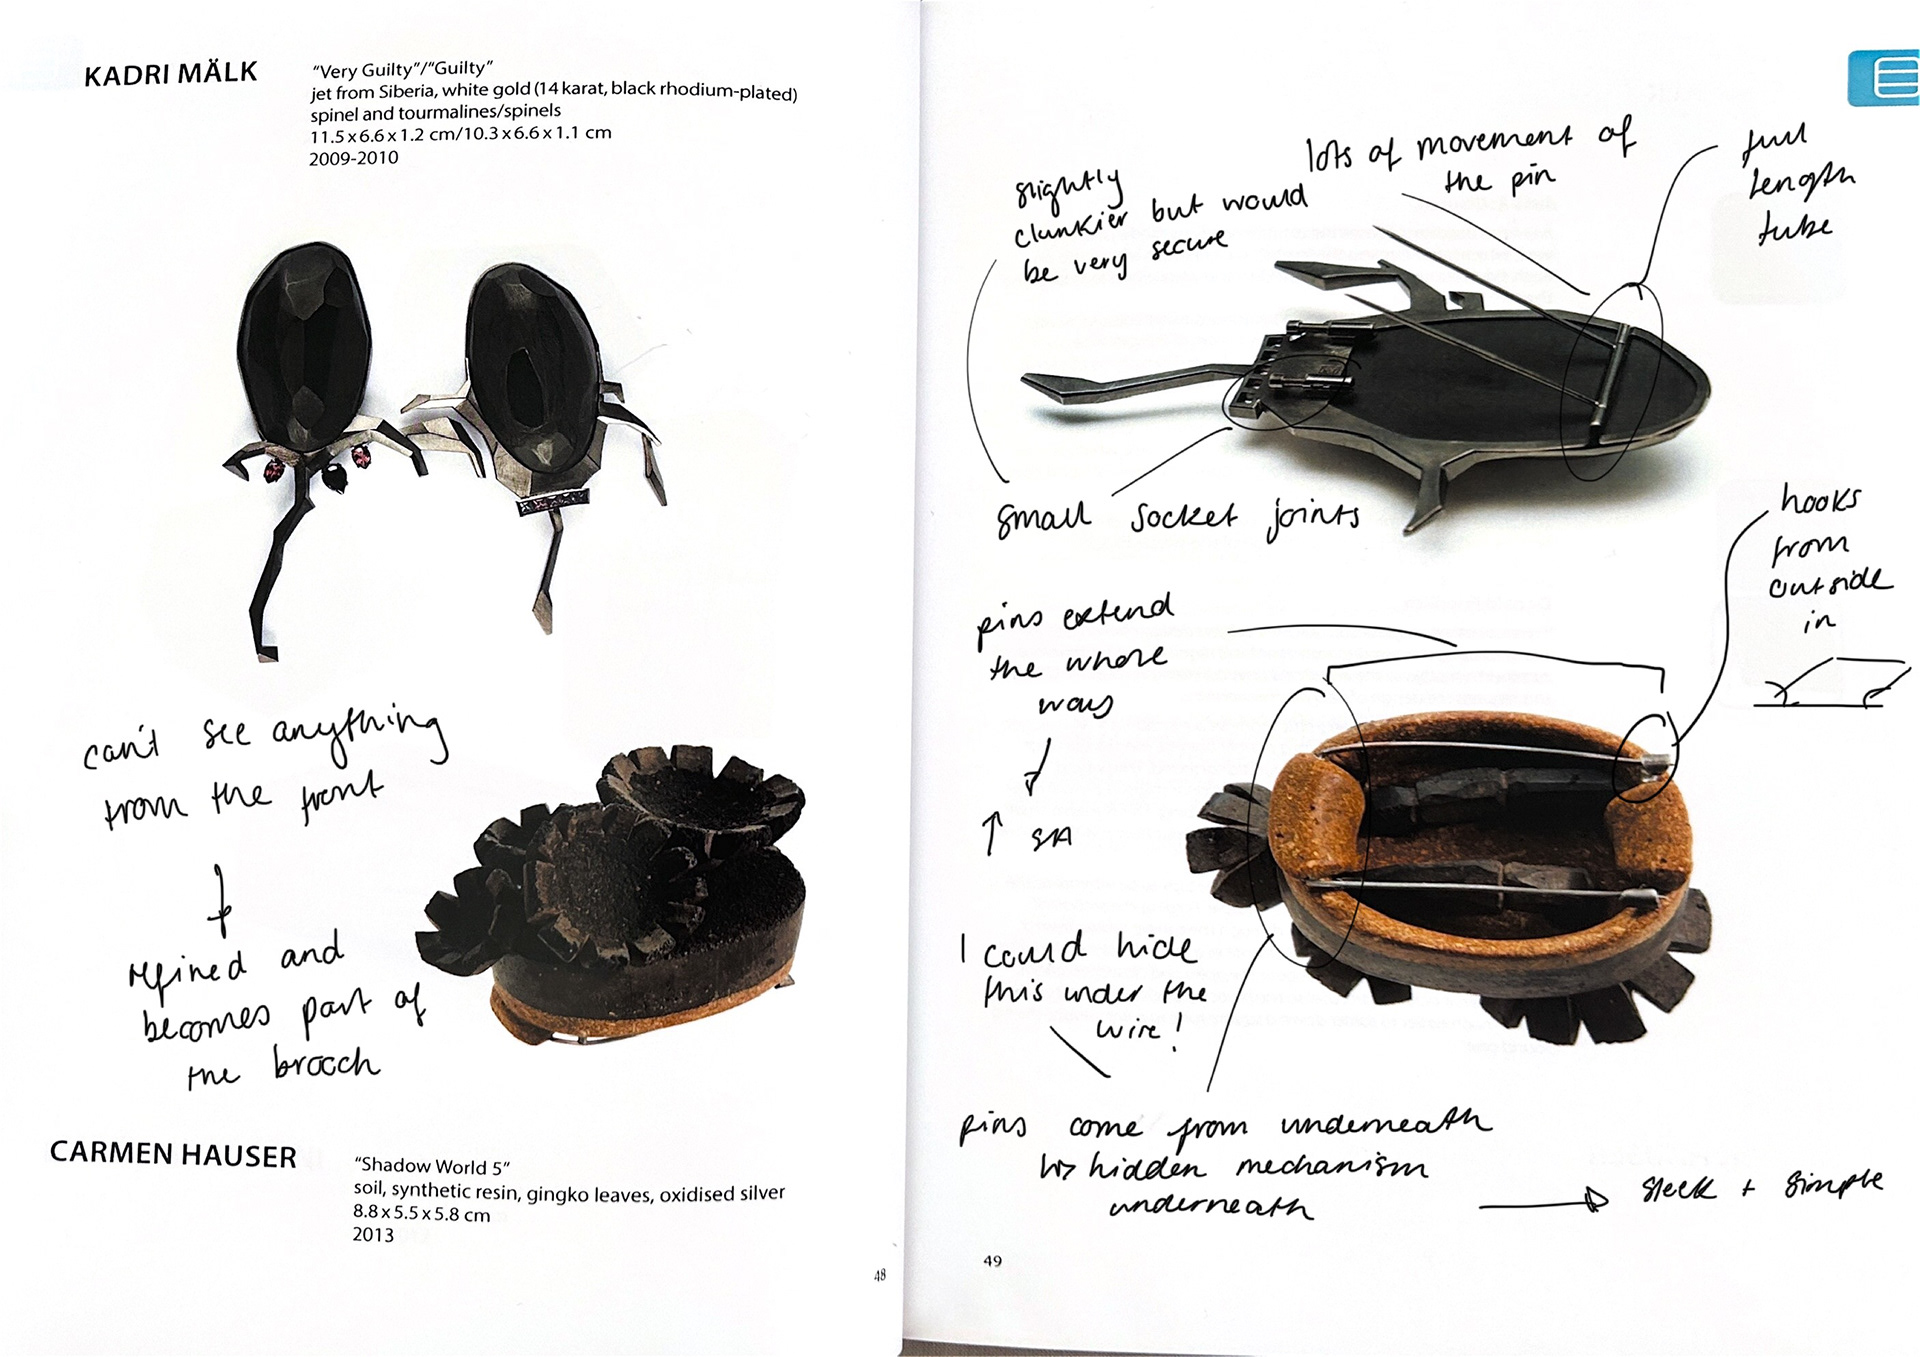 KADRI MÄLK
“Very Guilty”/“Guilty”
jet from Siberia, white gold (14 karat, black rhodium-plated)
spinel and tourmalines/spinels
11.5 x 6.6 x 1.2 cm/10.3 x 6.6 x 1.1 cm
2009-2010
can't see anything
from the front
refined and
becomes part of
the brooch
CARMEN HAUSER
“Shadow World 5”
soil, synthetic resin, gingko leaves, oxidised silver
8.8 x 5.5 x 5.8 cm
2013
48
E
slightly
clunkier but would
be very secure
lots of movement of
the pin
full
length
tube
small socket joints
hooks
from
outside
in
pins extend
the whole
way
↑
I could hide
this under the
wire!
pins come from underneath
↳ hidden mechanism
underneath
→ sleek + simple
49